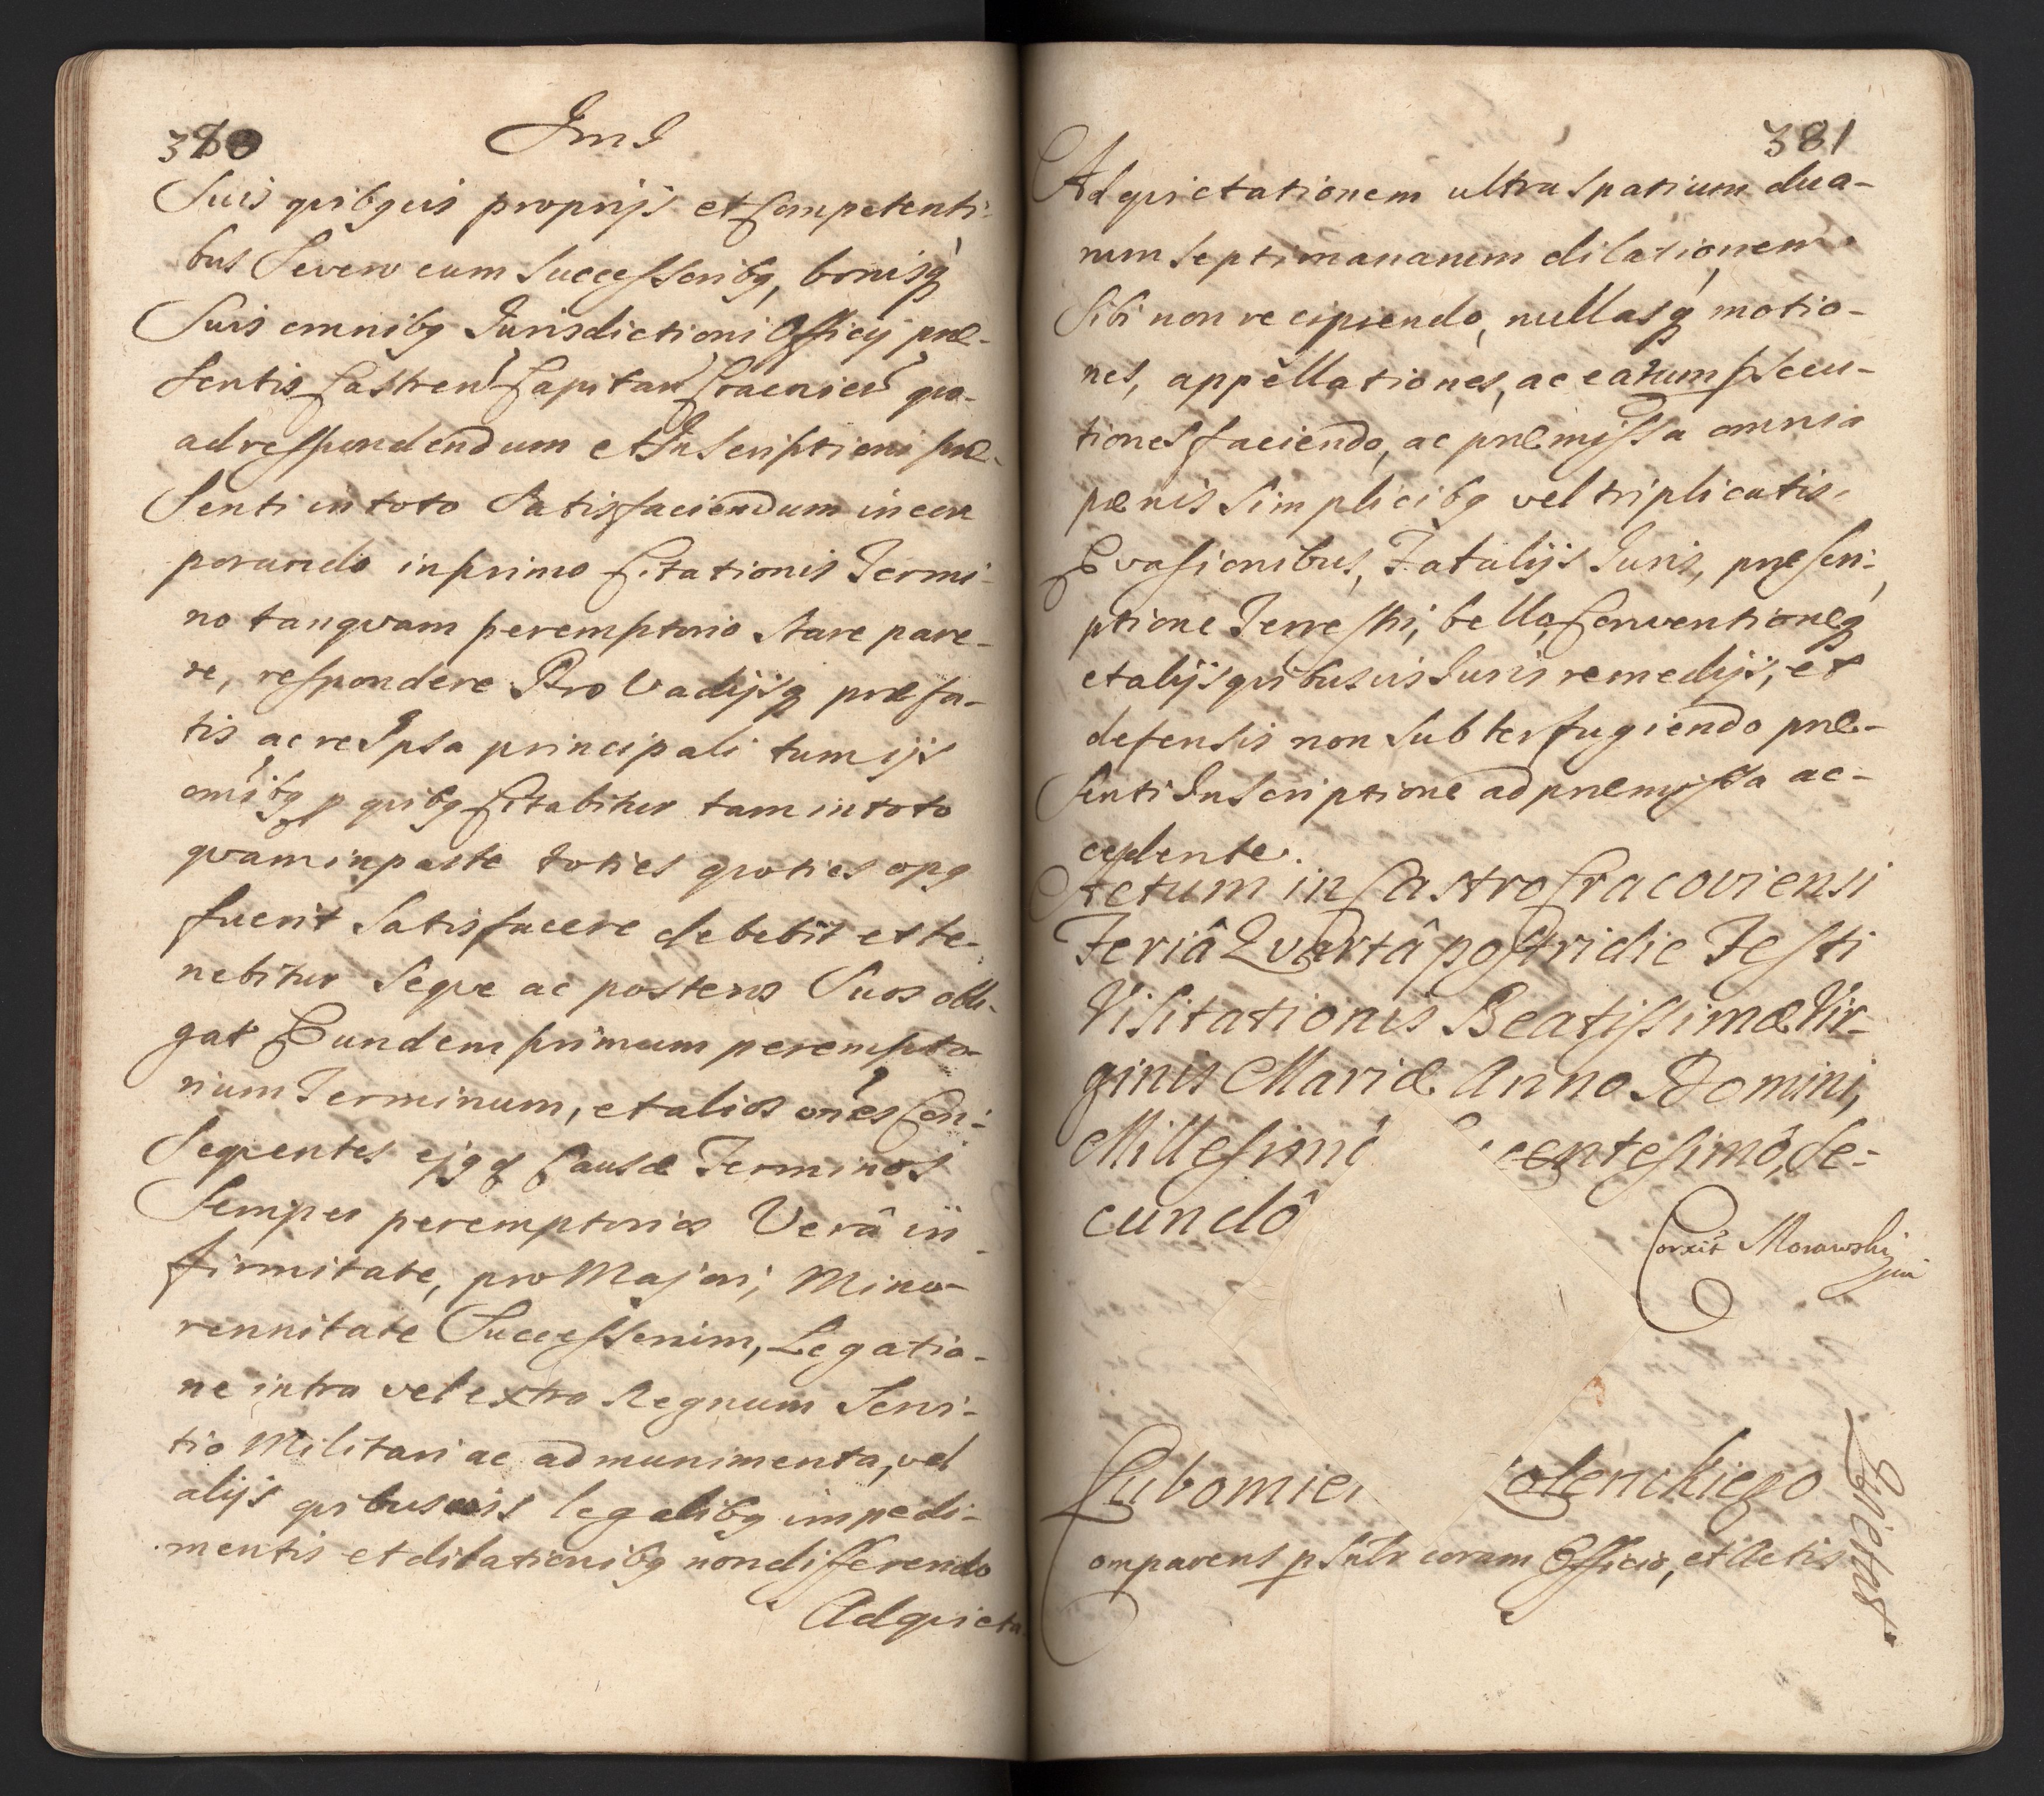 380
JmJ
Suis quibquis proprijs et Competenti-
bus Se vero cum Successoribq, bonisq
Suis omnibq Jurisdictioni Officij præ-
sentis Castren Capitan Cracovien quo
ad respondendum et Inscriptioni præ-
senti in toto Satisfaciendum incor
porando in primo Citationis Termi-
no tanquam peremptorio Stare pare-
re, respondere Pro Vadijsq præfa-
tis ac re Ipsa principali tum ijs
omibq p quibq Citabitur tam in toto
quam in parte toties quoties opq
fuerit Satisfacere debebit et te-
nebitur Seque ac posteros Suos obli-
gat Eundem primum perempto-
rium Terminum, et alios ones Con-
sequentes ejqd Causæ Terminos
Semper peremptorios Verâ in-
firmitate, pro Majori, Mino-
rennitate Successorum, Legatio-
ne intra vel extra Regnum Servi-
tio Militari ac ad munimenta, vel
alijs quibusvis legalibq impedi-
mentis et dilationibq non differendo
Adquieta-
381
Ad quietationem ultra spatium dua-
rum septimanarum dilationem
Sibi non recipiendo, nullasq motio-
nes, appellationes, ac earum psecu-
tiones faciendo, ac præmissa omnia
pænis Simplicibq vel triplicatis,
Evasionibus, Fatalijs Juris, præscri-
ptione Terrestri, bello, Conventioneq
et alijs quibusvis Juris remedijs, et
defensis non Subterfugiendo præ-
senti Inscriptione ad præmissa ac-
cedente.
Actum in Castro Cracoviensi
Feriâ Quartâ postridie Festi
Visitationis Beatissimæ Vir-
ginis Mariæ Anno Domini,
Millesimô centesimô, Se-
cundô
Correxit Morawski
mp
Lubomier olenckiego
Quietus
Comparens p Sntr coram Officio, et Actis